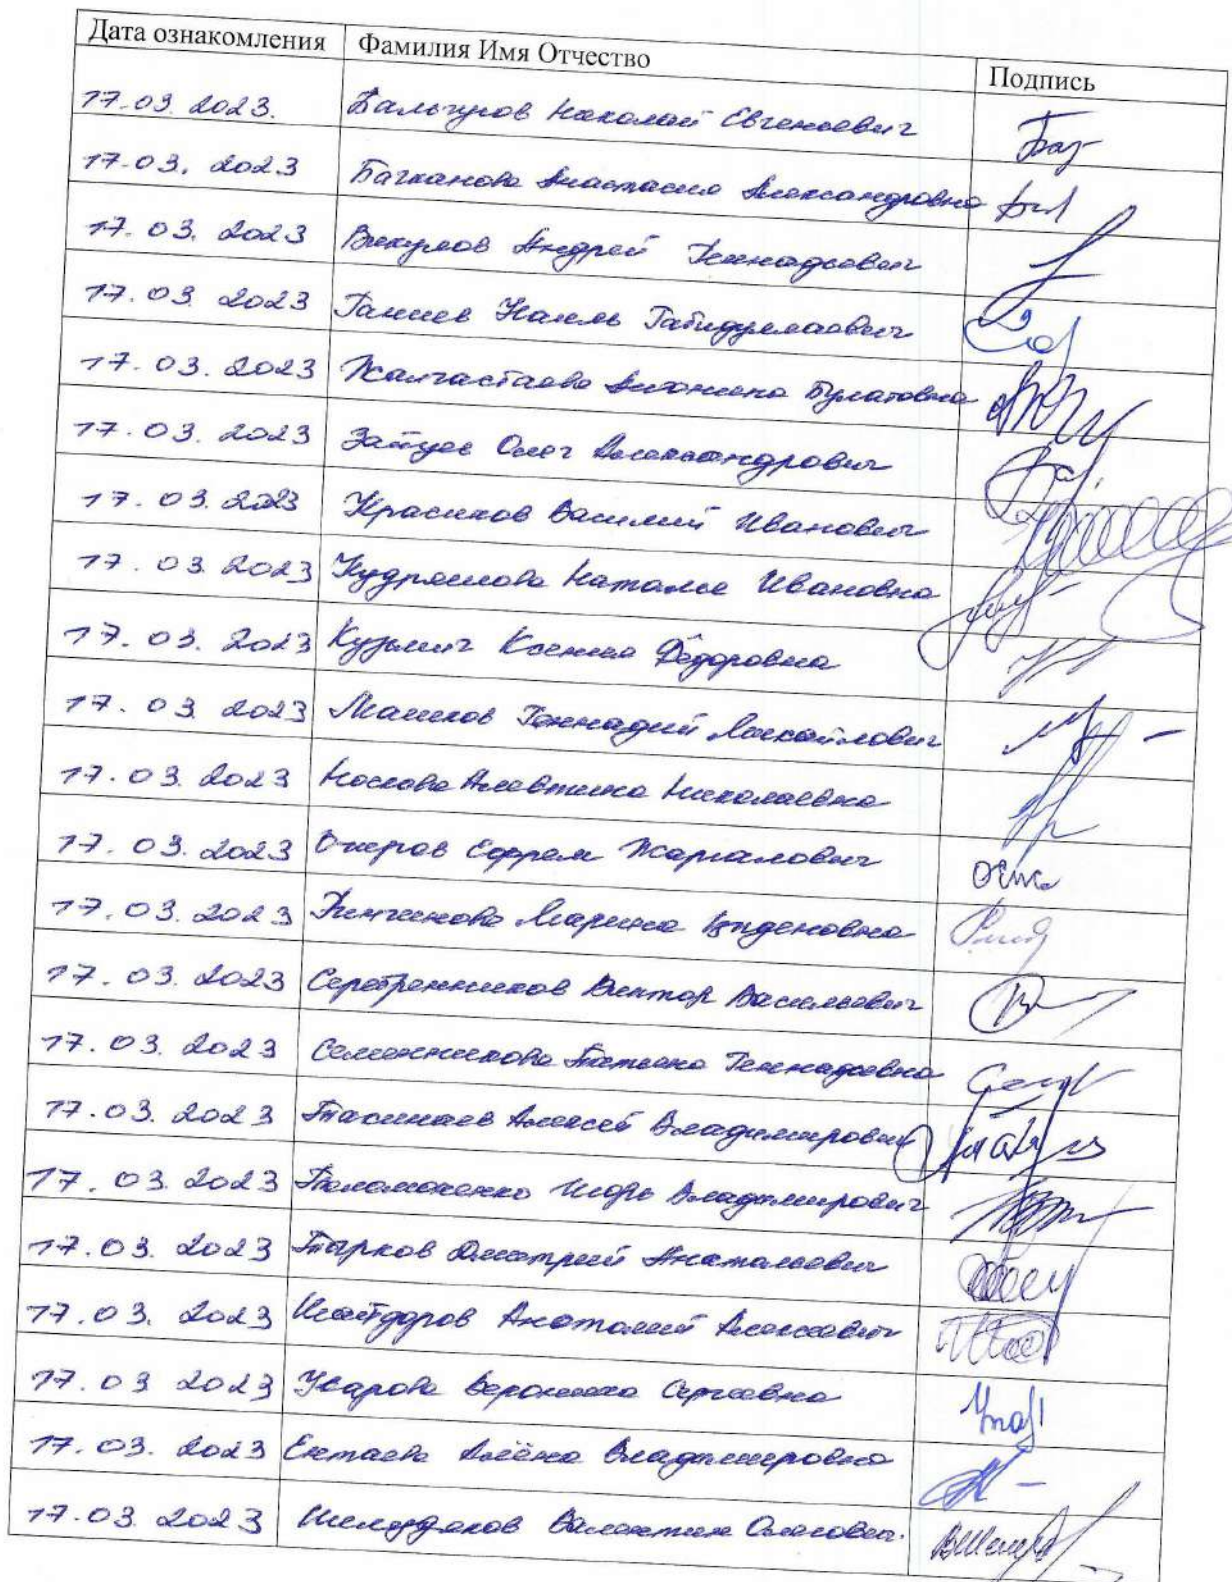 Дата ознакомления Фамилия Имя Отчество Подпись
17.03.2023. Бальчугов Николай Евгеньевич
17.03.2023 Бачканова Анастасия Александровна
17.03.2023 Викулов Андрей Геннадьевич
17.03.2023 Ганиев Наиль Габидуллаович
17.03.2023 Жамгастаева Антонина Булатовна
17.03.2023 Зайцев Олег Александрович
17.03.2023 Красиков Василий Иванович
17.03.2023 Кудряшова Наталья Ивановна
17.03.2023 Кузьмич Ксения Фёдоровна
17.03.2023 Машков Геннадий Михайлович
17.03.2023 Носкова Алевтина Николаевна
17.03.2023 Очиров Ефрем Жаргалович
17.03.2023 Ринчинова Марина Цыденовна
17.03.2023 Серебренников Виктор Васильевич
17.03.2023 Семенникова Татьяна Геннадьевна
17.03.2023 Алексей Владимирович
17.03.2023 Толомоненко Игорь Владимирович
17.03.2023 Тырков Дмитрий Анатольевич
17.03.2023 Шайдоров Анатолий Алексеевич
17.03.2023 Укарова Вероника Сергеевна
17.03.2023 Ентаева Алёна Владимировна
17.03.2023 Валентин Олегович.